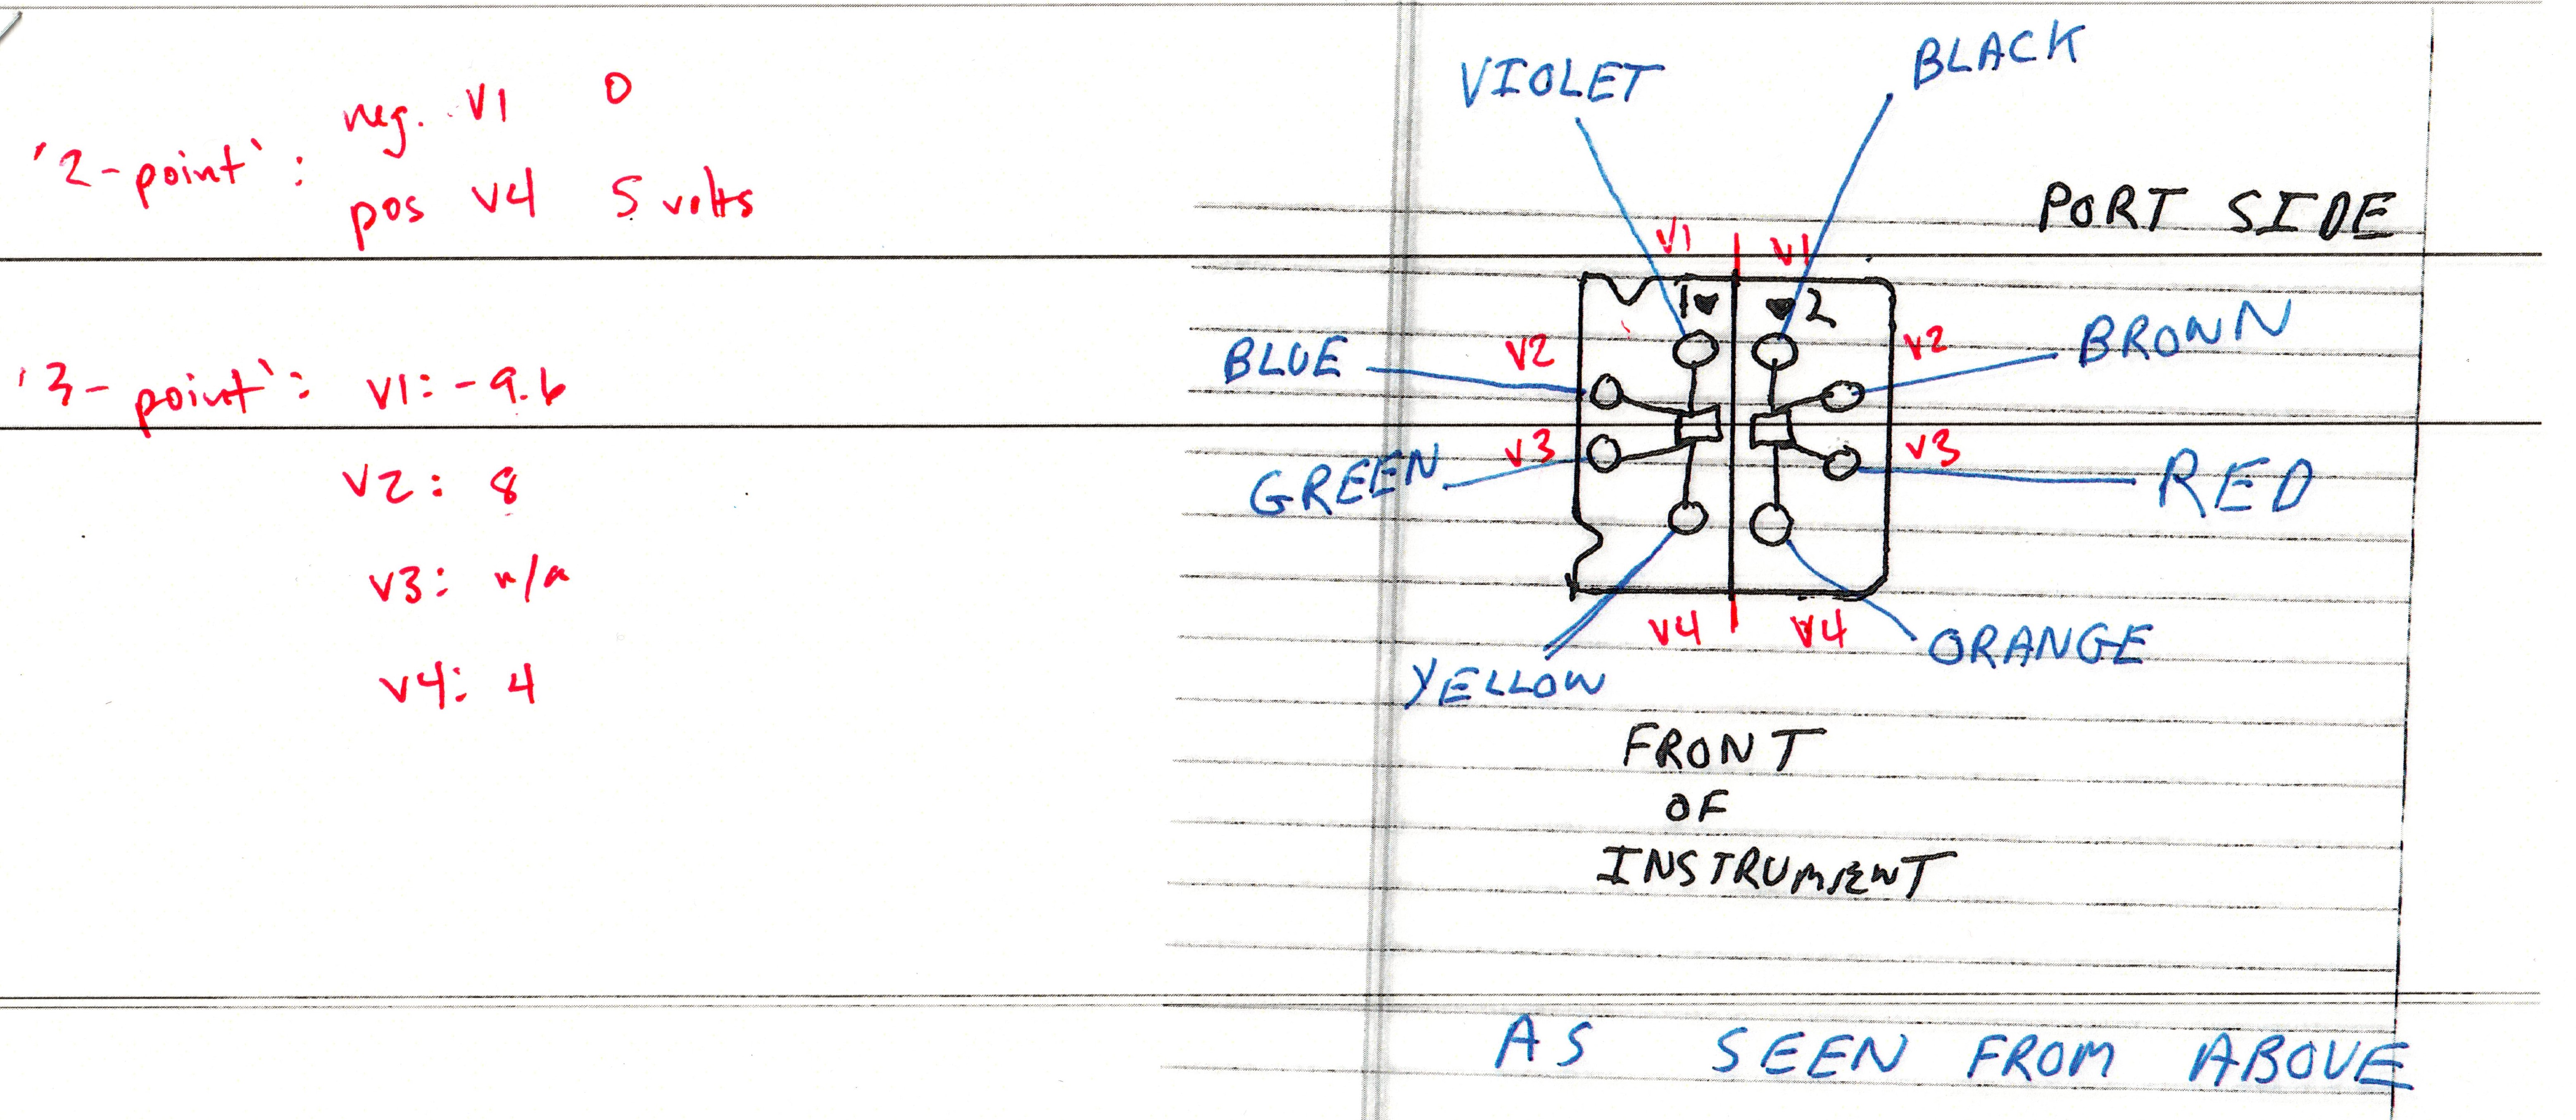 '2-point': neg. V1 0
pos V4 5 volts
'3-point': V1: -9.6
V2: 8
V3: n/a
V4: 4
VIOLET BLACK
PORT SIDE
V1 V1
1 2
BLUE V2 V2 BROWN
GREEN V3 V3 RED
V4 V4
YELLOW ORANGE
FRONT
OF
INSTRUMENT
AS SEEN FROM ABOVE